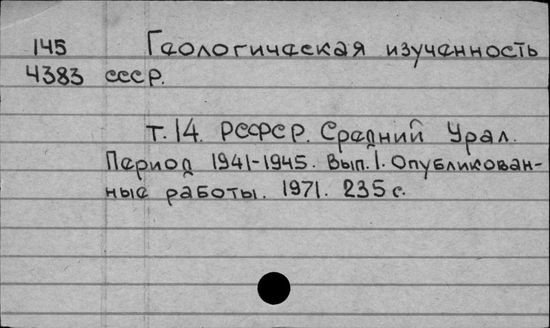 145 Геологическая изученность
4383 СССР.
т. 14. РСФСР. Средний Урал.
Период 1941-1945. Вып. 1. Опубликован-
ные работы. 1971. 235 с.